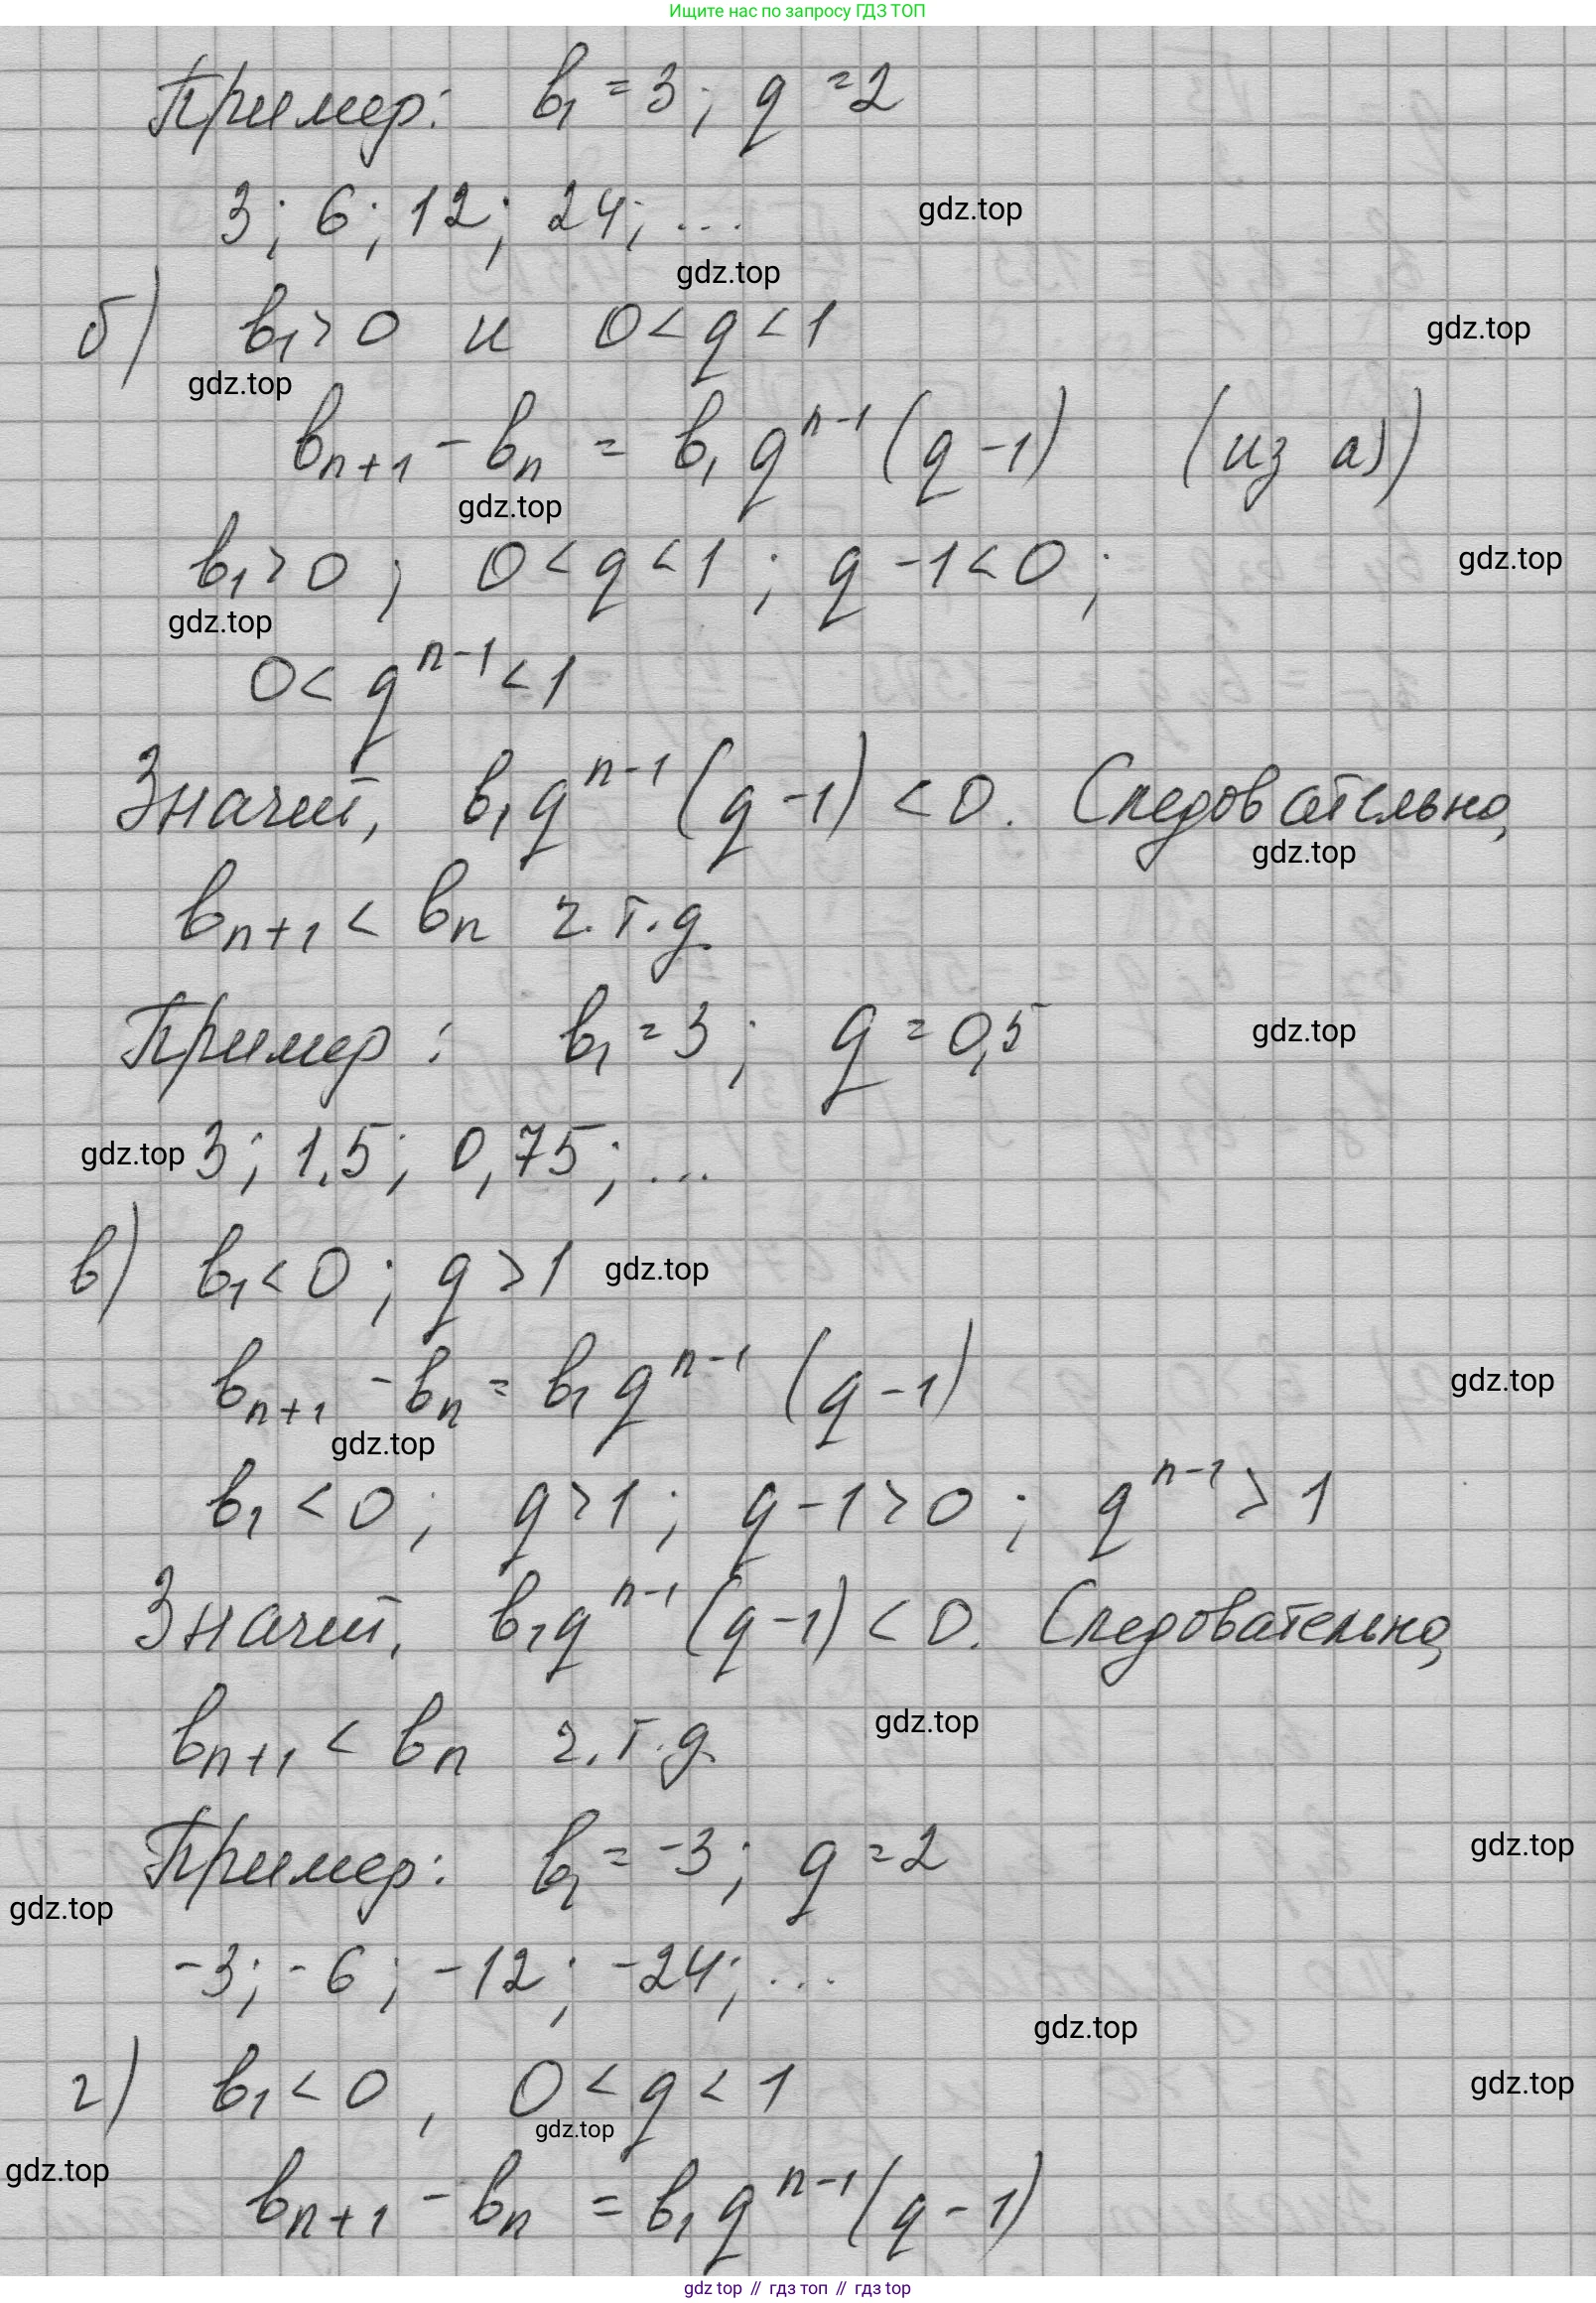 Ищите нас по запросу ГДЗ ТОП
Пример: b₁ = 3; q = 2
3; 6; 12; 24; ...
gdz.top
gdz.top
б) b₁ > 0 и 0 < q < 1
gdz.top
gdz.top
bₙ₊₁ - bₙ = b₁ qⁿ⁻¹ (q - 1) (из а))
gdz.top
b₁ > 0; 0 < q < 1; q - 1 < 0;
gdz.top
gdz.top
0 < qⁿ⁻¹ < 1
Значит, b₁qⁿ⁻¹ (q - 1) < 0. Следовательно,
gdz.top
bₙ₊₁ < bₙ ч.т.д.
Пример: b₁ = 3; q = 0,5
gdz.top
gdz.top
3; 1,5; 0,75; ...
в) b₁ < 0; q > 1
gdz.top
bₙ₊₁ - bₙ = b₁ qⁿ⁻¹ (q - 1)
gdz.top
gdz.top
b₁ < 0; q > 1; q - 1 > 0; qⁿ⁻¹ > 1
Значит, b₁qⁿ⁻¹ (q - 1) < 0. Следовательно,
bₙ₊₁ < bₙ ч.т.д.
gdz.top
Пример: b₁ = -3; q = 2
gdz.top
gdz.top
-3; -6; -12; -24; ...
gdz.top
г) b₁ < 0, 0 < q < 1
gdz.top
gdz.top
gdz.top
bₙ₊₁ - bₙ = b₁ qⁿ⁻¹ (q - 1)
gdz top // гдз топ // гдз top